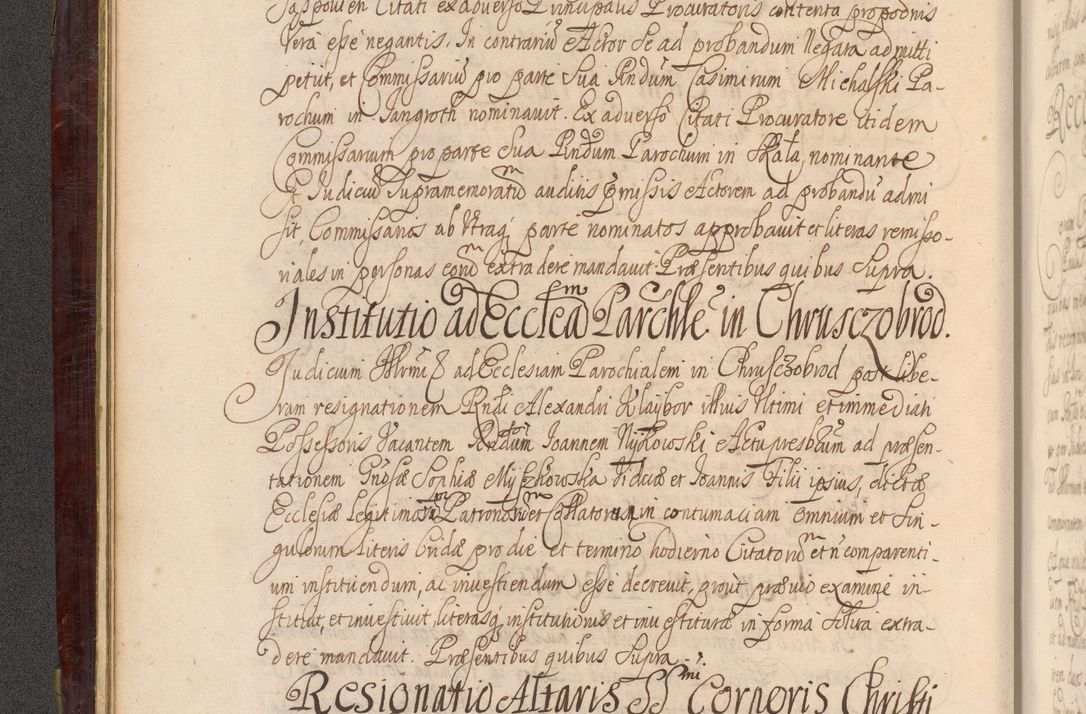 Sappowen Citati ex adverso Principalis Procuratoris contenta propositis
Vera esse negantis. In contrariū Actor se ad probandum Negata admitti
petiit, et Commissariū pro parte Sua Rndum Casimirum Michalski Pa-
rochum in Jangroth nominavit. Ex adverso Citati Procuratore itidem
Commissarium pro parte Sua Rndum Parochum in Skała, nominante
Et Judiciū Supramemoratū auditis pmissis Actorem ad probandū admi
sit, Commissarios ab Utraq; parte nominatos approbavit et literas remisso-
riales in personas eorū extradere mandavit. Præsentibus quibus Supra.
Institutio ad Eccleām Parchlē in Chrusczobrod.
Judicium ad Ecclesiam Parochialem in Chrusczobrod post libe-
ram resignationem Rndi Alexandri Klaybor illius Ultimi et immediati
Possessoris Vacantem Rndum Joannem Nyikowski Actu presbrūm ad præsen-
tationem Gnosæ Sophiæ Myszkowska Viduæ et Joannis Filii ipsius, dictæ
Ecclesiæ legitimorū Patronorū et Collatorum in contumaciam omnium et sin-
gulorum literis Cridæ pro die et termino hodierno Citatorū et n̄ comparenti-
um instituendum, ac investiendum esse decrevit, prout prævio examine in-
stituit, et investivit, literasq; institutionis et investituræ in forma solita extra-
dere mandavit. Præsentibus quibus Supra.
Resignatio Altaris SSmi Corporis Christi